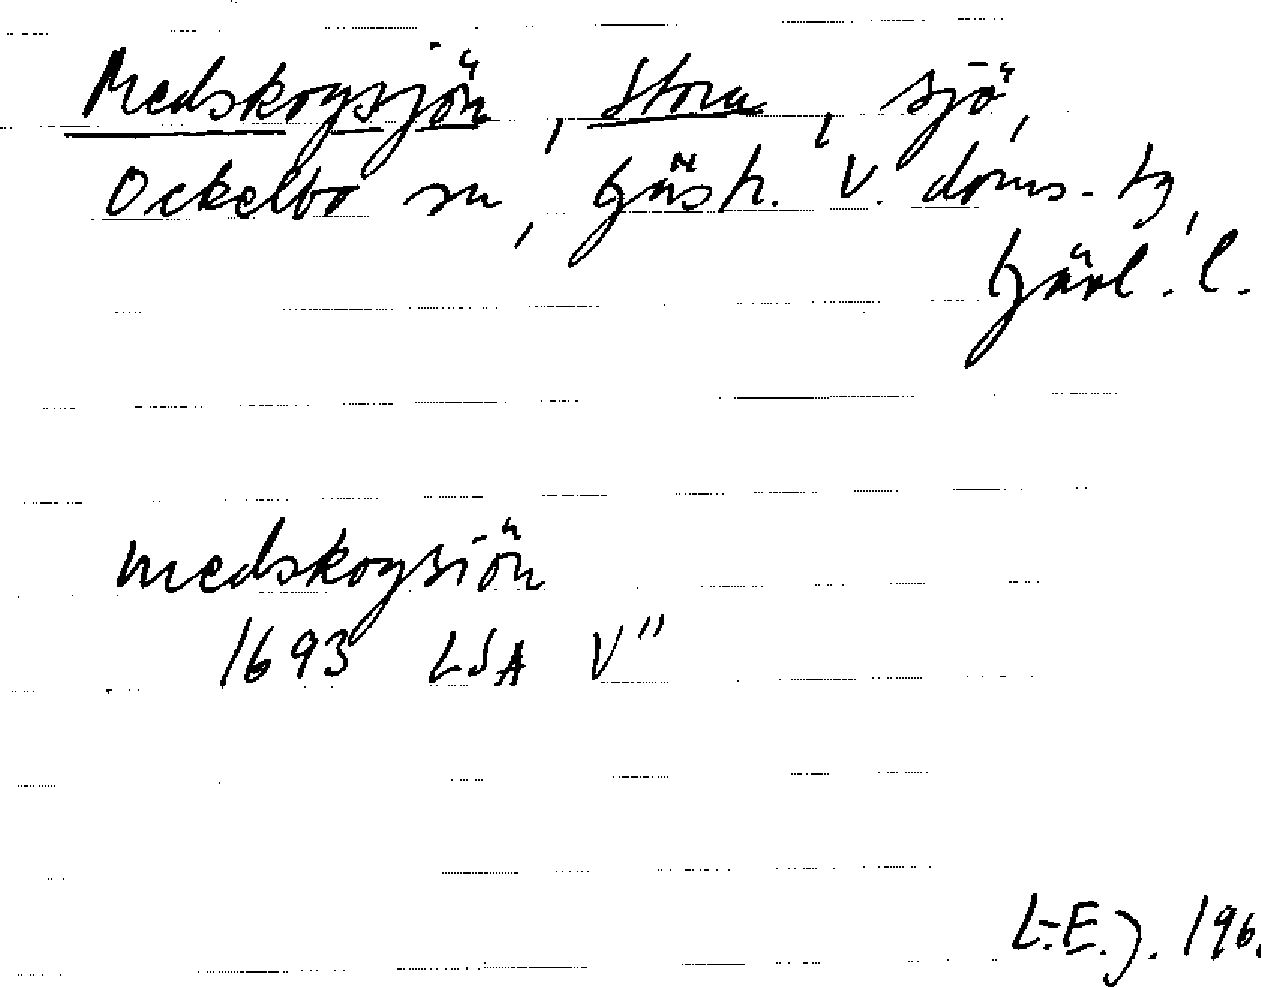 Medskogssjön, Stora, sjö,
Ockelbo sn, Gästr. V. doms-tg,
Gävl. l.
medskogsiön
1693 LSA V"
L-E.J. 196